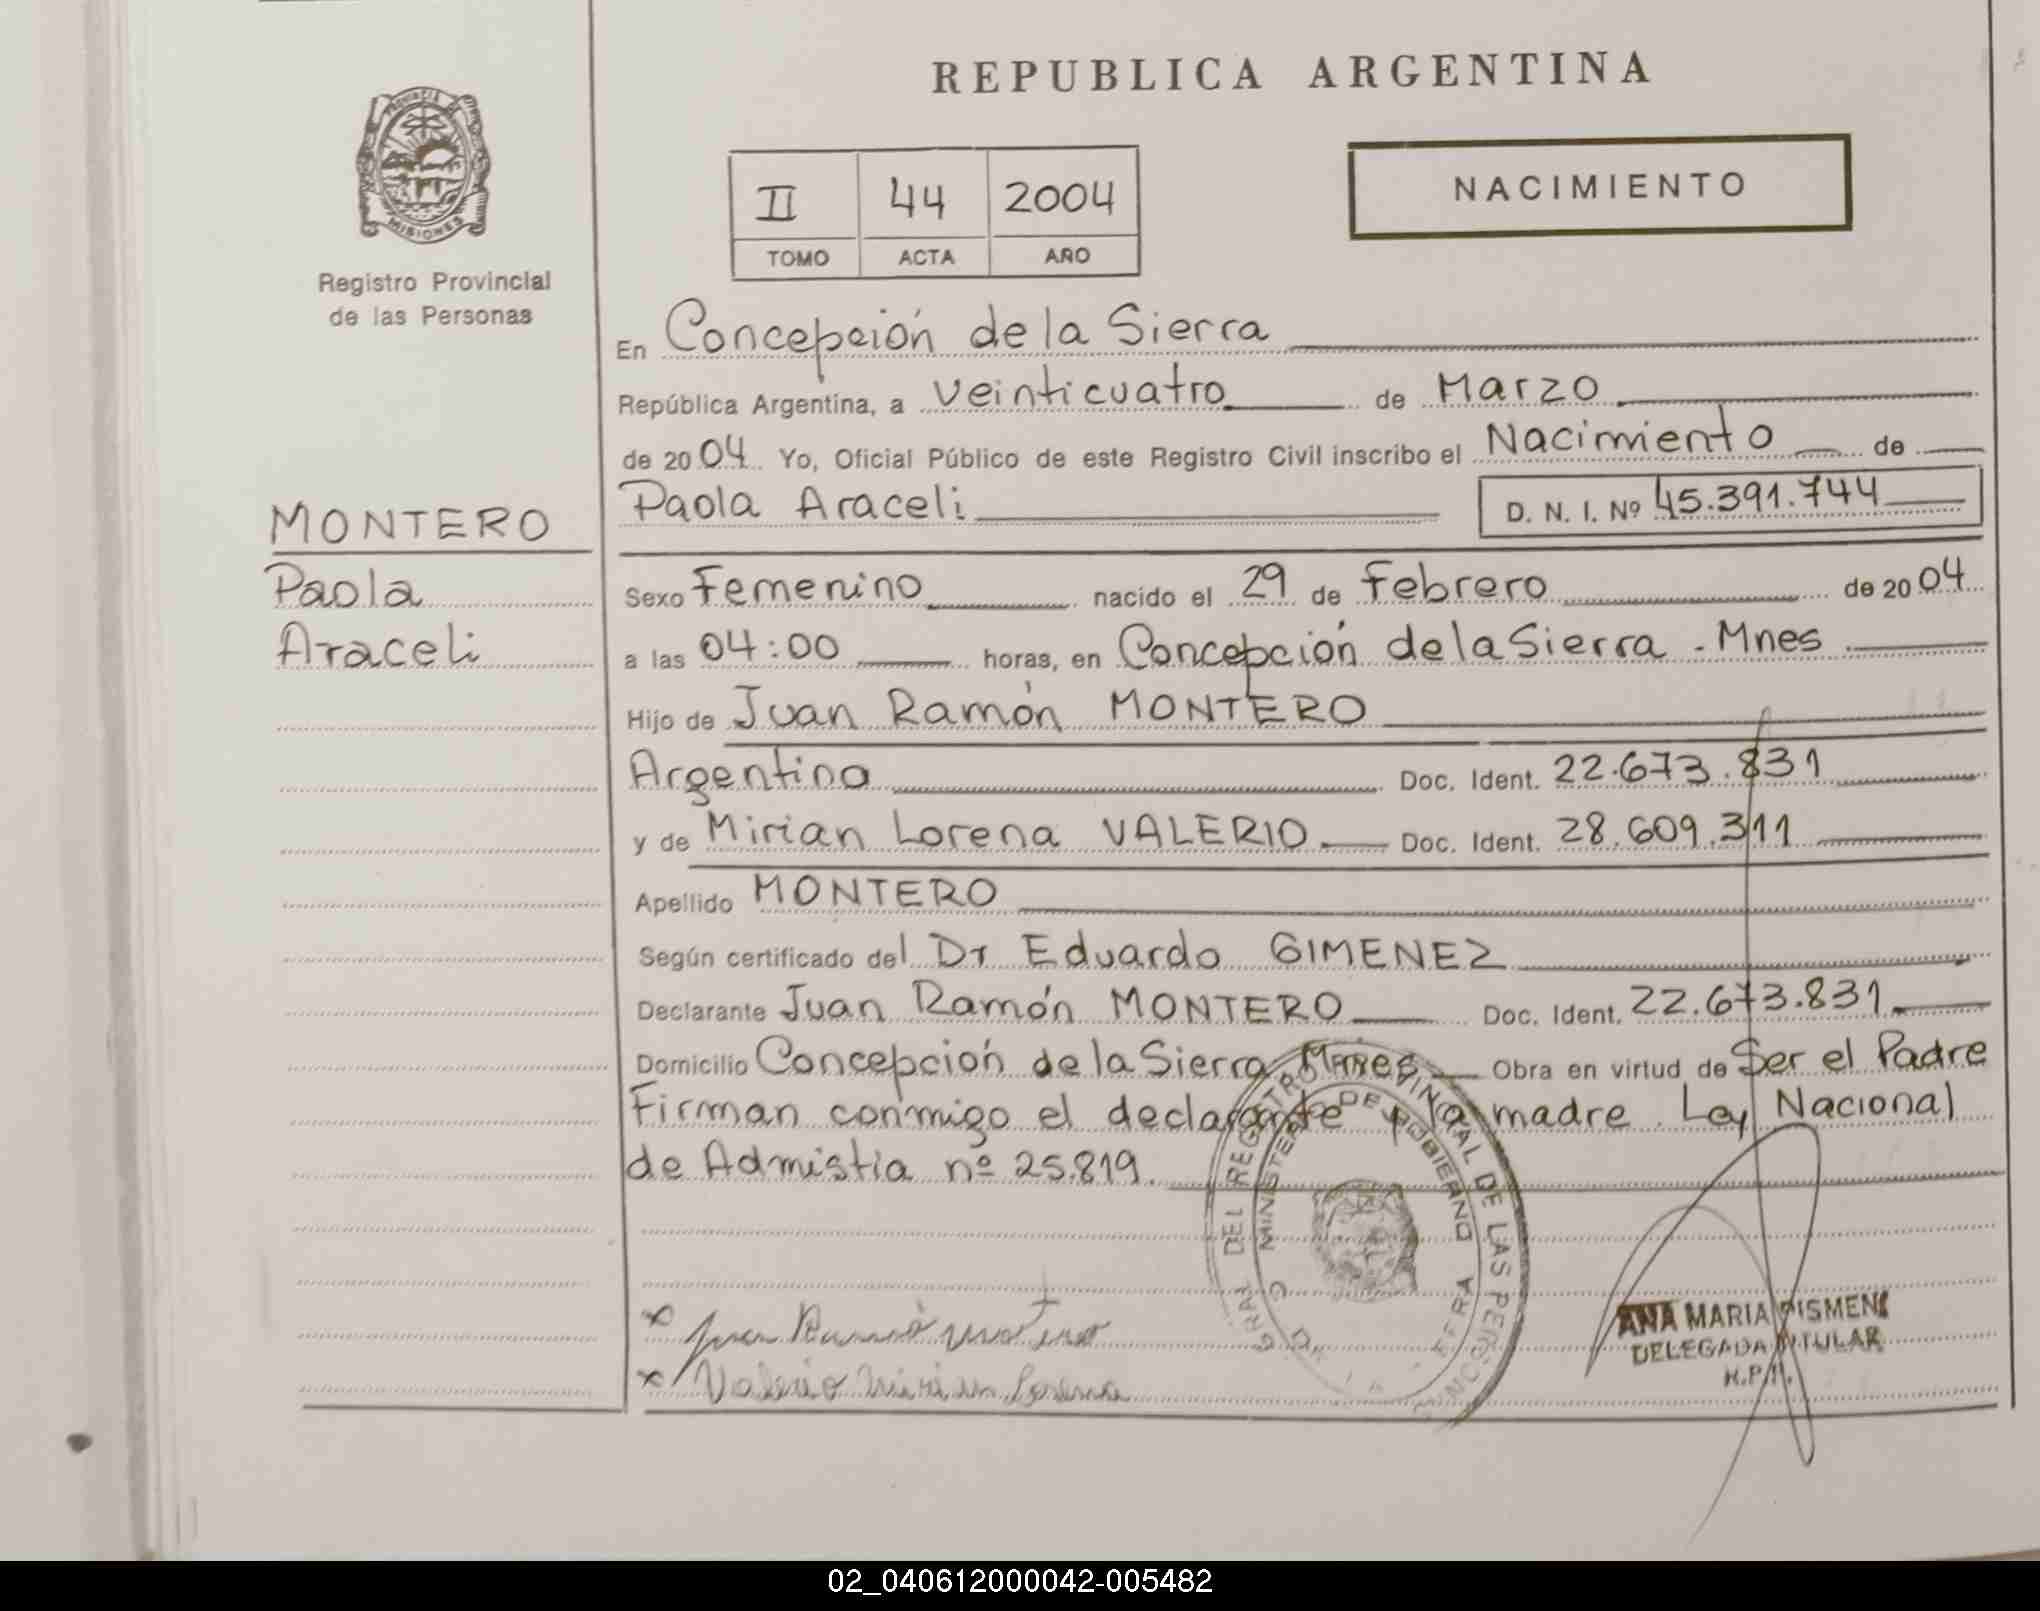 REPUBLICA ARGENTINA
PROVINCIA
MISIONES
II 44 2004
TOMO ACTA AÑO
NACIMIENTO
Registro Provincial
de las Personas
En Concepción de la Sierra
República Argentina, a veinticuatro de Marzo
de 2004 Yo, Oficial Público de este Registro Civil inscribo el Nacimiento de
Paola Araceli D. N. I. Nº 45.391.744
MONTERO
Paola
Araceli
Sexo Femenino nacido el 29 de Febrero de 2004
a las 04:00 horas, en Concepción de la Sierra - Mnes
Hijo de Juan Ramón MONTERO
Argentino Doc. Ident. 22.673.831
y de Mirian Lorena VALERIO Doc. Ident. 28.609.311
Apellido MONTERO
Según certificado del Dr Eduardo GIMENEZ
Declarante Juan Ramón MONTERO Doc. Ident. 22.673.831
Domicilio Concepción de la Sierra Mnes Obra en virtud de Ser el Padre
Firman conmigo el declarante y la madre. Ley Nacional
de Admistia nº 25.819.
DEL REGISTRO PROVINCIAL DE LAS PERSONAS
MINISTERIO DE GOBIERNO
x Juan Ramón Montero
x Valerio Mirian Lorena
ANA MARIA PISMENI
DELEGADA TITULAR
R.P.P.
02_040612000042-005482